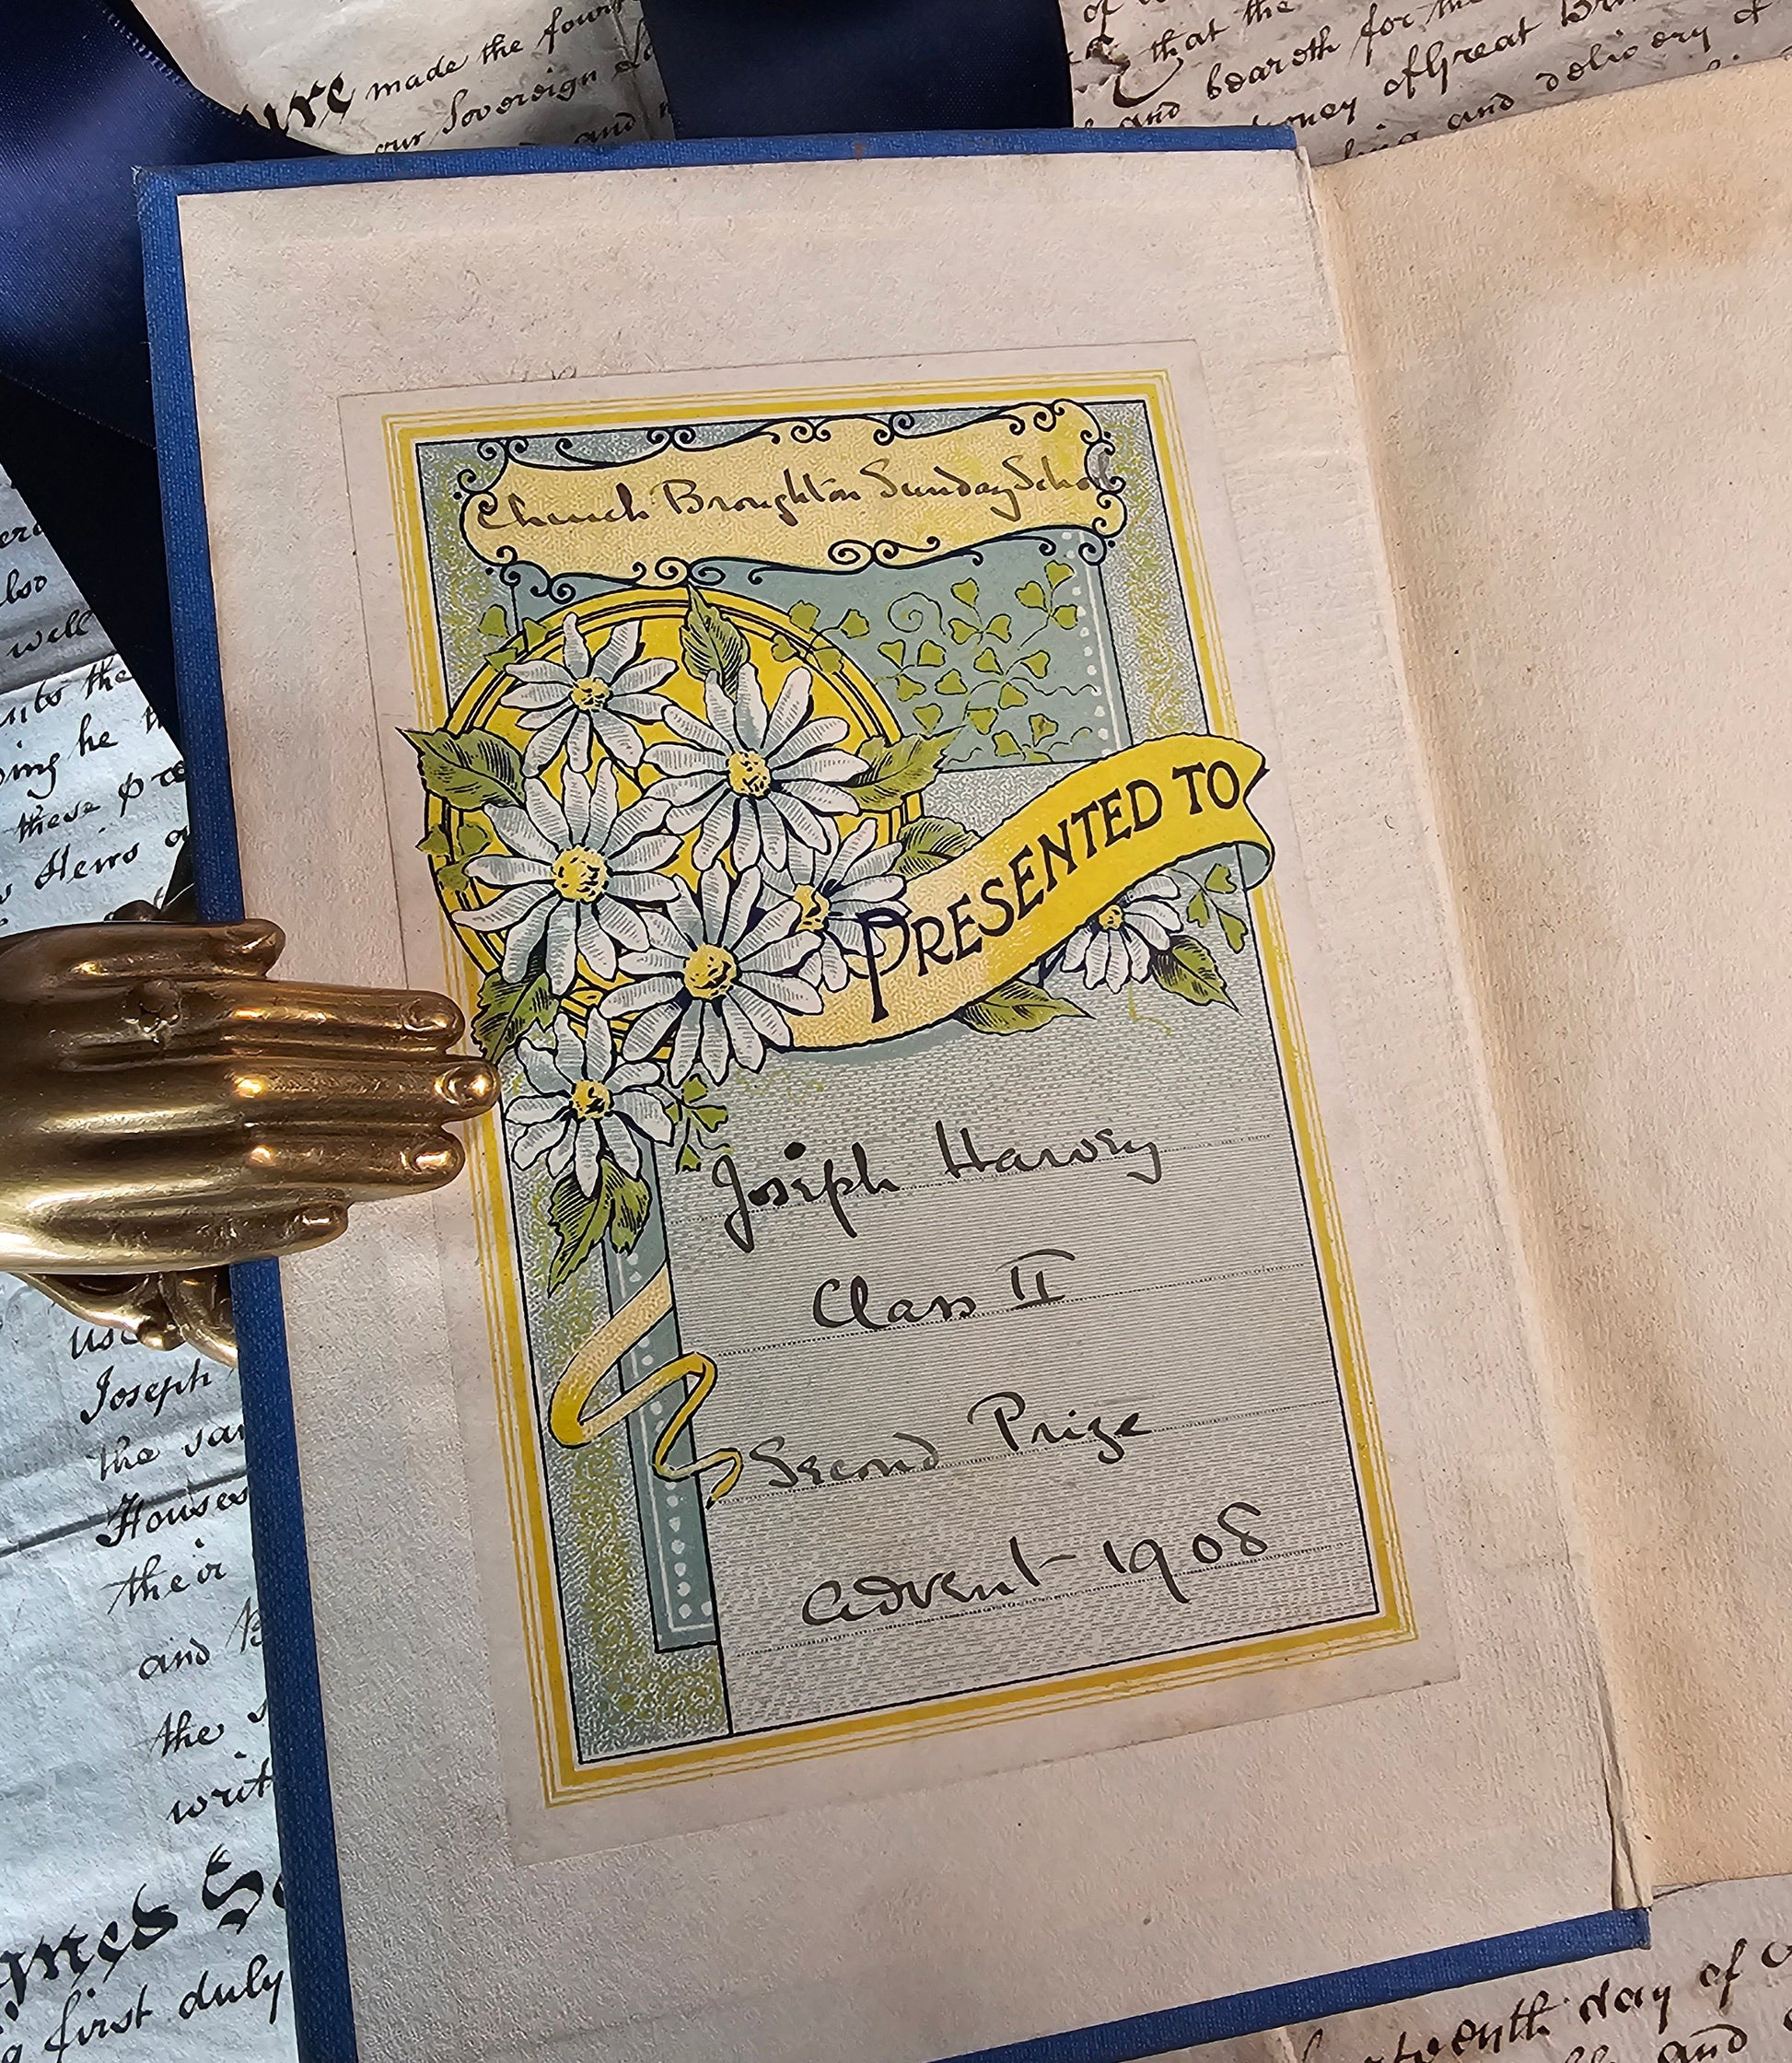 made the four
our Sovereign
and
of
that the
and beareth for the
oney of Great Bri
and delivery of
Church Broughton Sunday School
PRESENTED TO
Joseph Harvey
Class II
Second Prize
Advent 1908
also
well
unto the
ing he
these pre
Heirs
use
Joseph
the sa
Houses
their
and
the s
writ
first duly
teenth day of
and